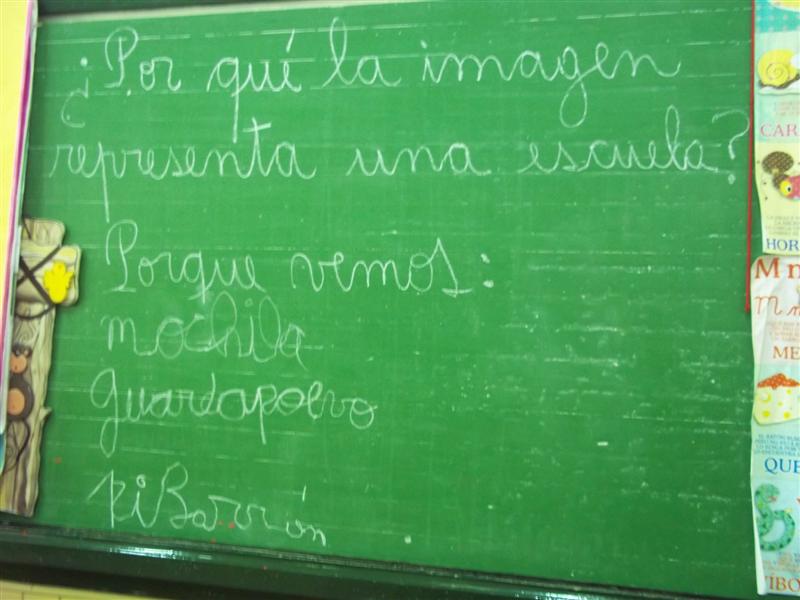 ¿Por qué la imagen
representa una escuela?
Porque vemos:
mochila
guardapolvo
piBarrón
CAR
HOR
M m
ME
QUE